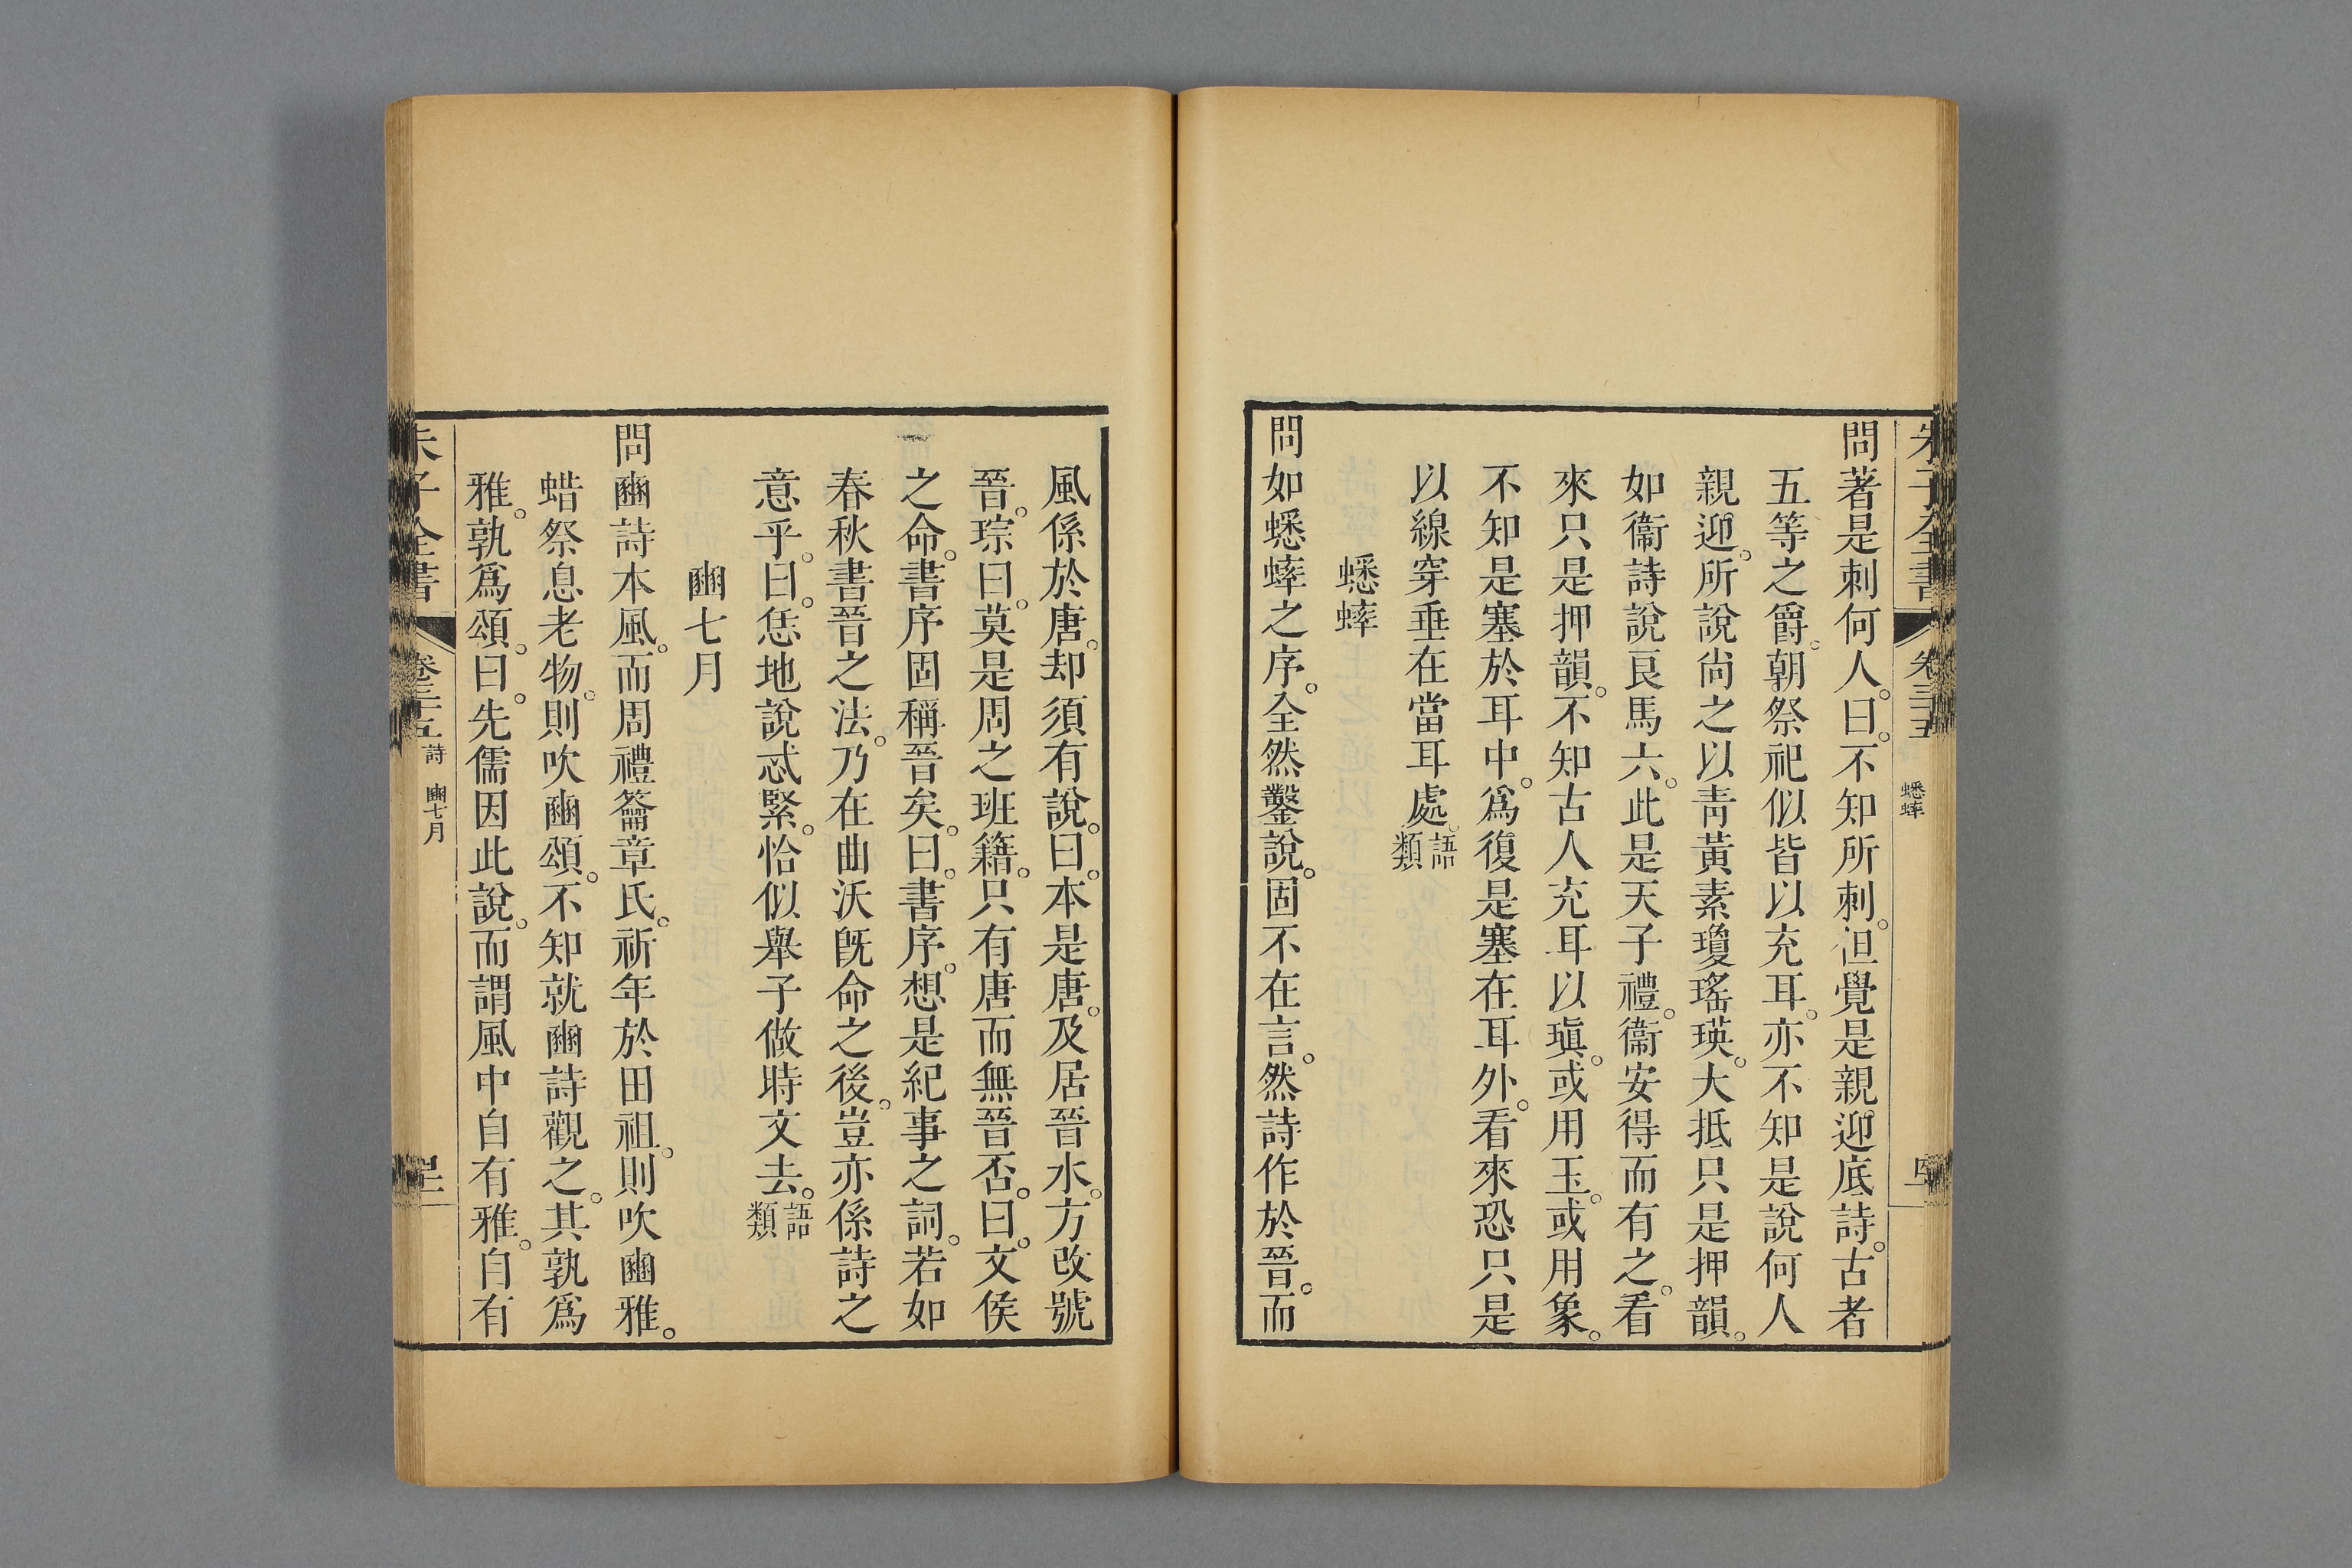 朱子全書 卷三十五 蟋蟀
問著是刺何人。曰。不知所刺。但覺是親迎底詩。古者
五等之爵。朝祭祀似皆以充耳。亦不知是說何人
親迎。所說尙之以靑黃素瓊瑤瑛。大抵只是押韻。
如衞詩說良馬六。此是天子禮。衞安得而有之。看
來只是押韻。不知古人充耳以瑱。或用玉。或用象。
不知是塞於耳中。爲復是塞在耳外。看來恐只是
以線穿垂在當耳處。語類
蟋蟀
問如蟋蟀之序。全然鑿說。固不在言。然詩作於晉。而
風係於唐。却須有說。曰。本是唐。及居晉水。方改號
晉。琮曰。莫是周之班籍。只有唐而無晉否。曰。文侯
之命。書序固稱晉矣。曰。書序。想是紀事之詞。若如
春秋書晉之法。乃在曲沃旣命之後。豈亦係詩之
意乎。曰。恁地說忒緊。恰似舉子做時文去。語類
豳七月
問豳詩本風。而周禮籥章氏。祈年於田祖。則吹豳雅。
蜡祭息老物。則吹豳頌。不知就豳詩觀之。其孰爲
雅。孰爲頌。曰。先儒因此說。而謂風中自有雅。自有
朱子全書 卷三十五 詩 豳七月